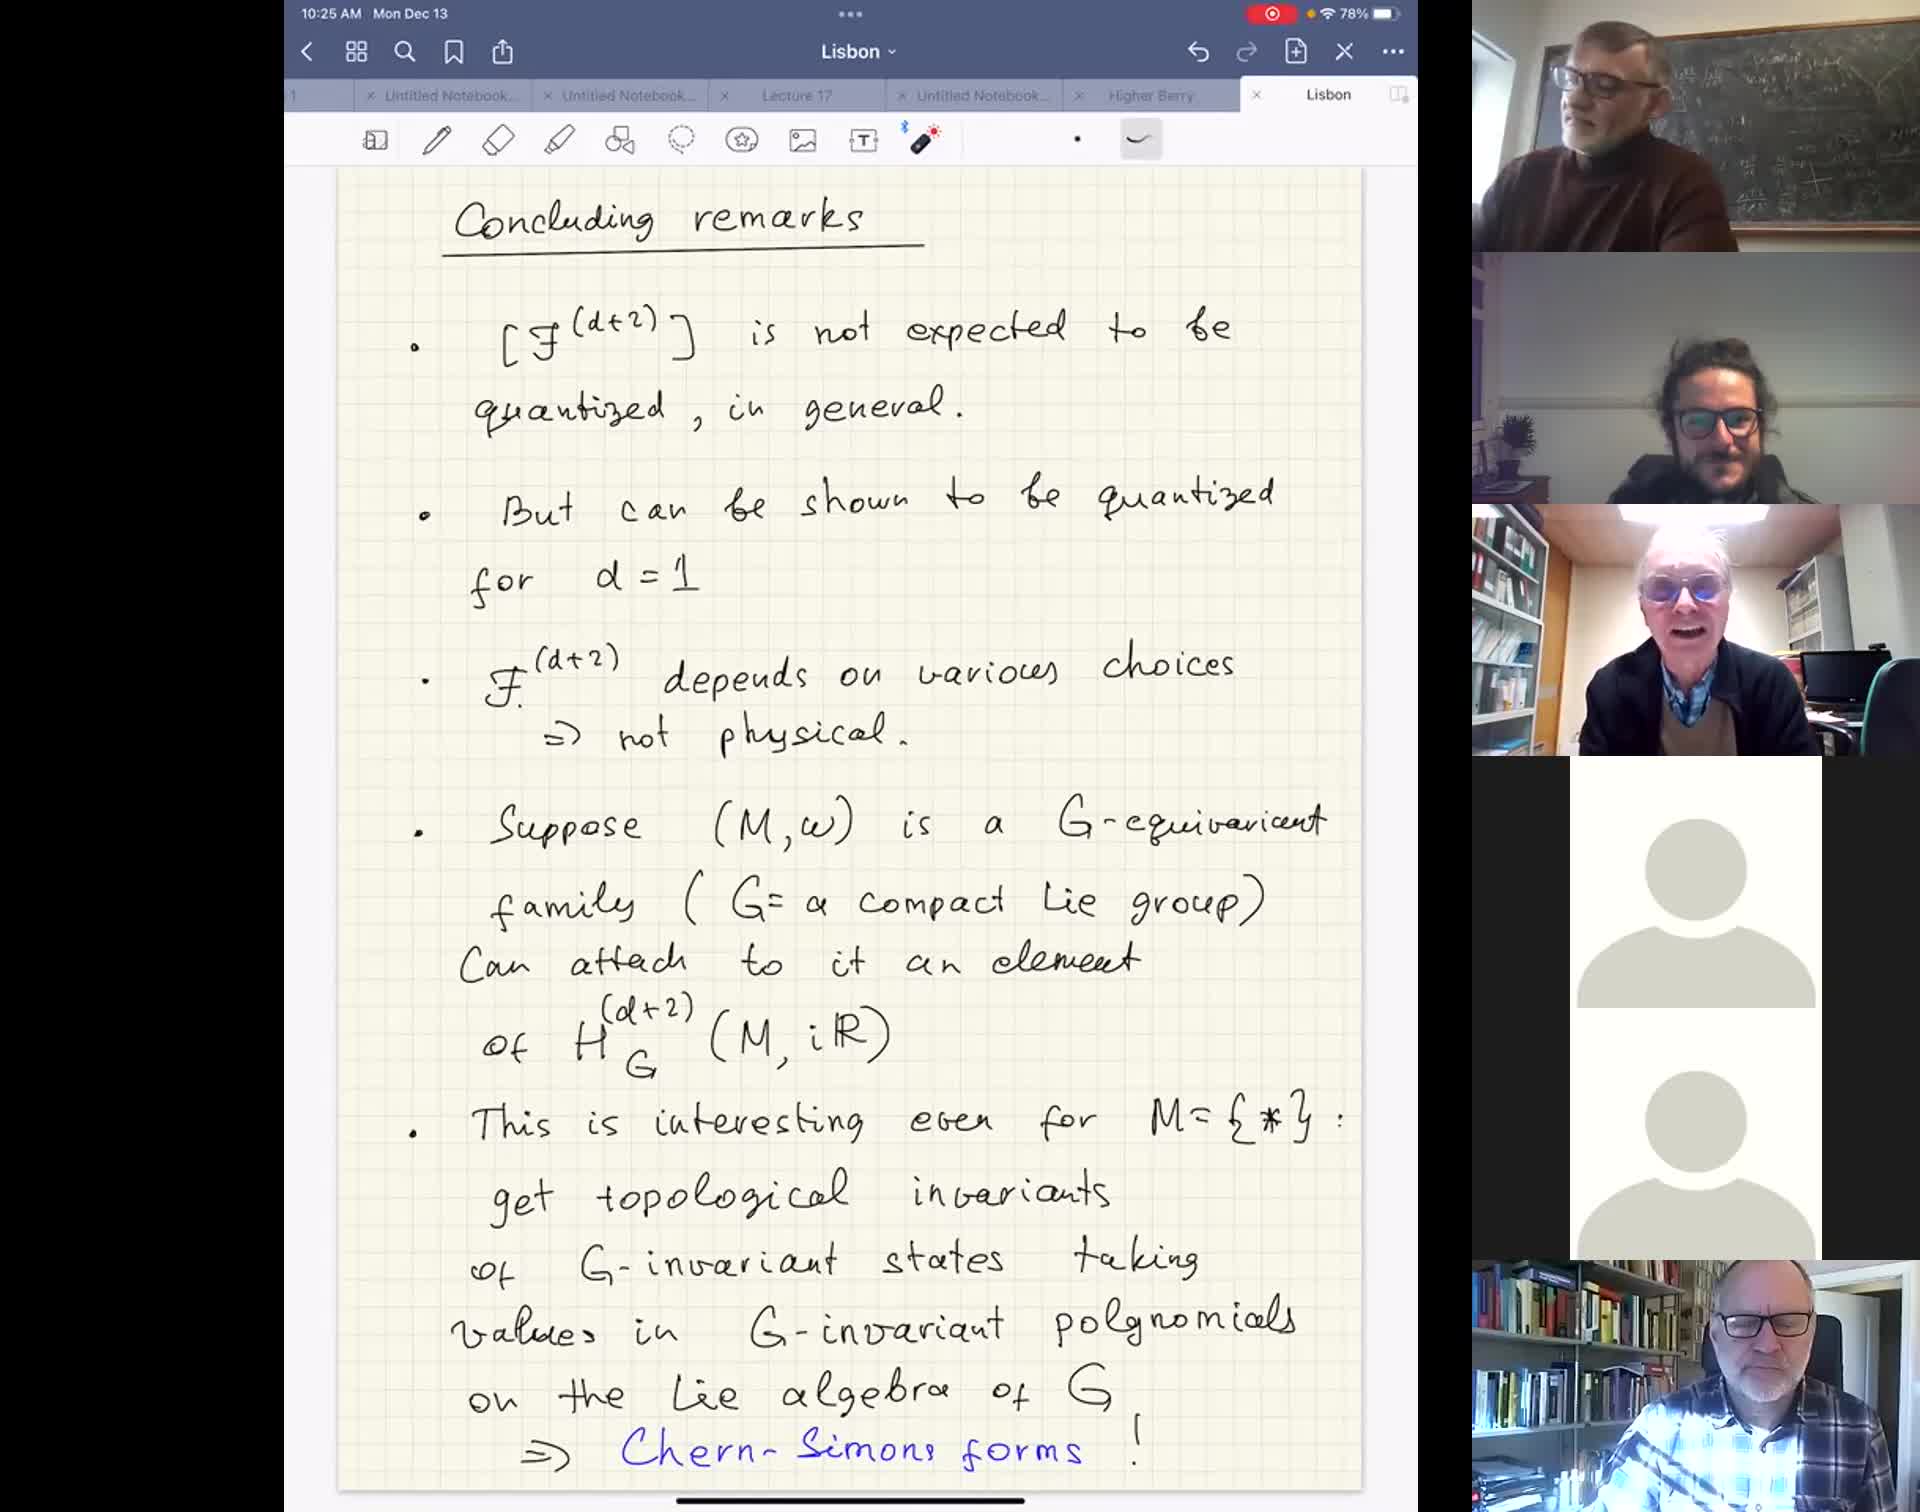 10:25 AM Mon Dec 13
78%
Lisbon
1
Untitled Notebook...
Untitled Notebook...
Lecture 17
Untitled Notebook...
Higher Berry
Lisbon
Concluding remarks
• [F^(d+2)] is not expected to be
quantized, in general.
• But can be shown to be quantized
for d = 1
• F^(d+2) depends on various choices
⇒ not physical.
• Suppose (M, ω) is a G-equivariant
family (G = a compact Lie group)
Can attach to it an element
of H_G^(d+2) (M, iℝ)
• This is interesting even for M = {*} :
get topological invariants
of G-invariant states taking
values in G-invariant polynomials
on the Lie algebra of G
⇒ Chern-Simons forms !